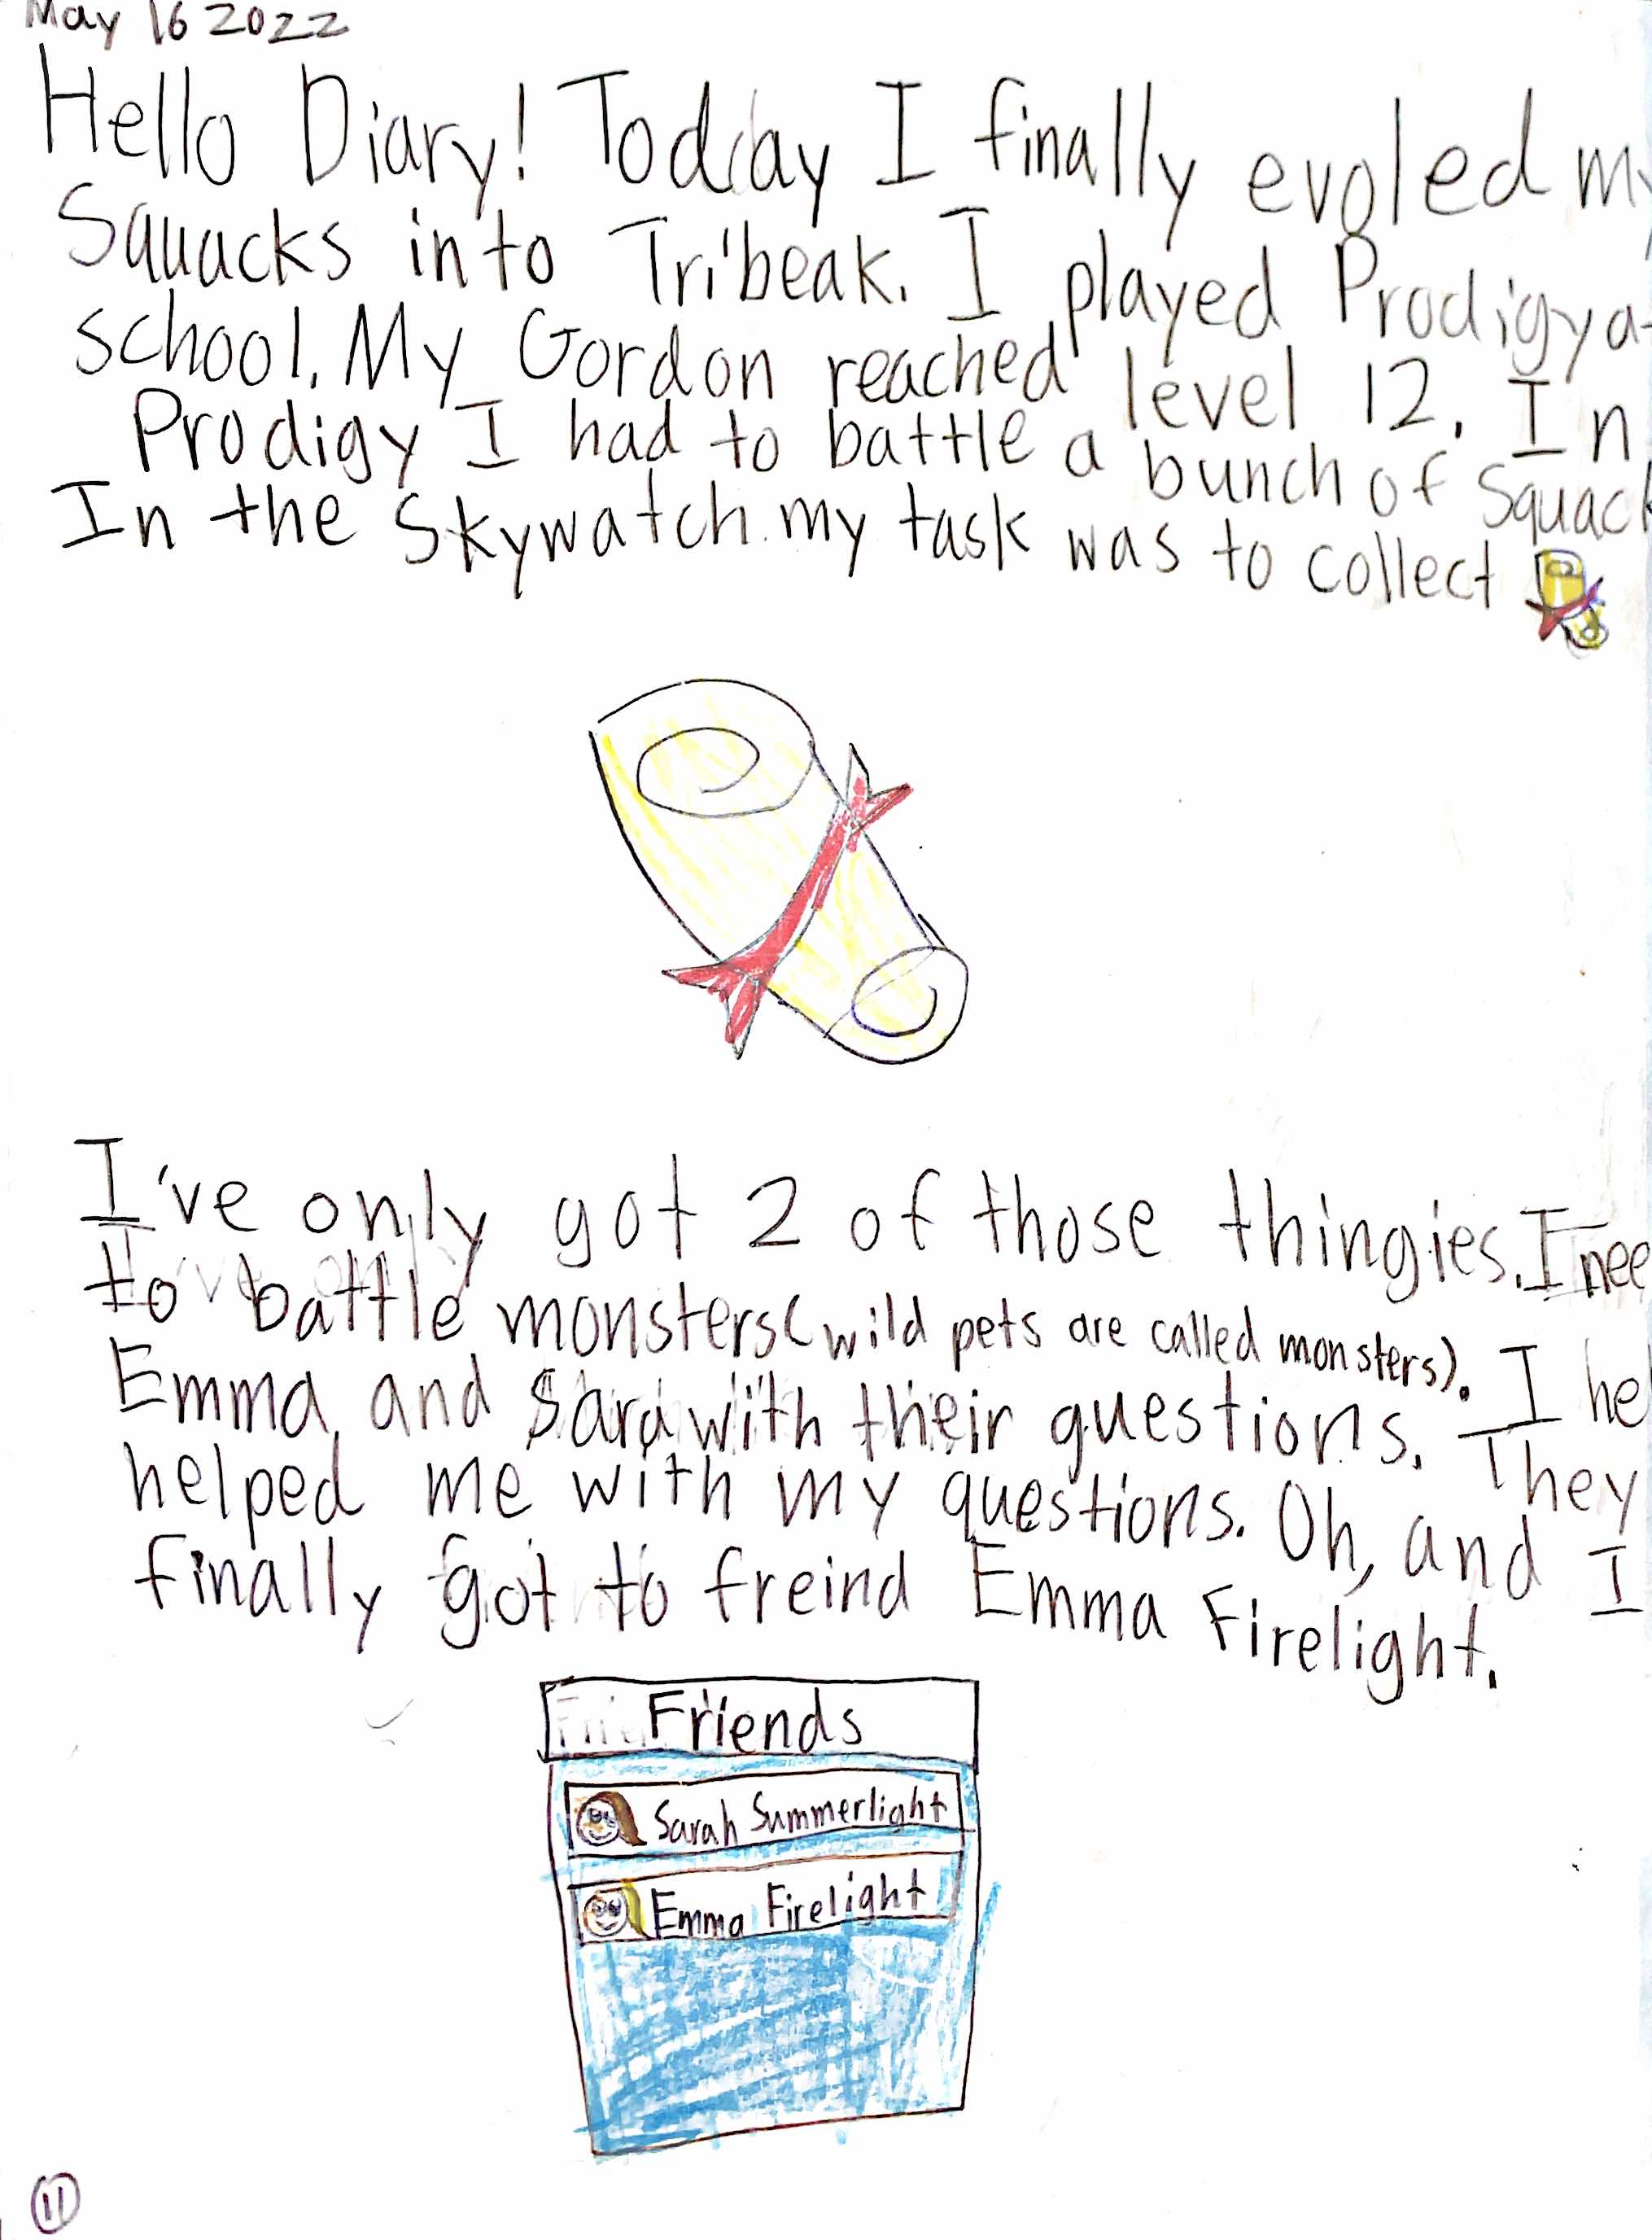 May 16 2022
Hello Diary! Today I finally evoled my
Squacks into Tribeak. I played Prodigy a
school. My Gordon reached level 12. In
Prodigy I had to battle a bunch of Squack
In the Skywatch my task was to collect
I've only got 2 of those thingies. I nee
to battle monsters(wild pets are called monsters). I hel
Emma and Sara with their questions. They
helped me with my questions. Oh, and I
finally got to freind Emma Firelight.
Friends
Sarah Summerlight
Emma Firelight
11